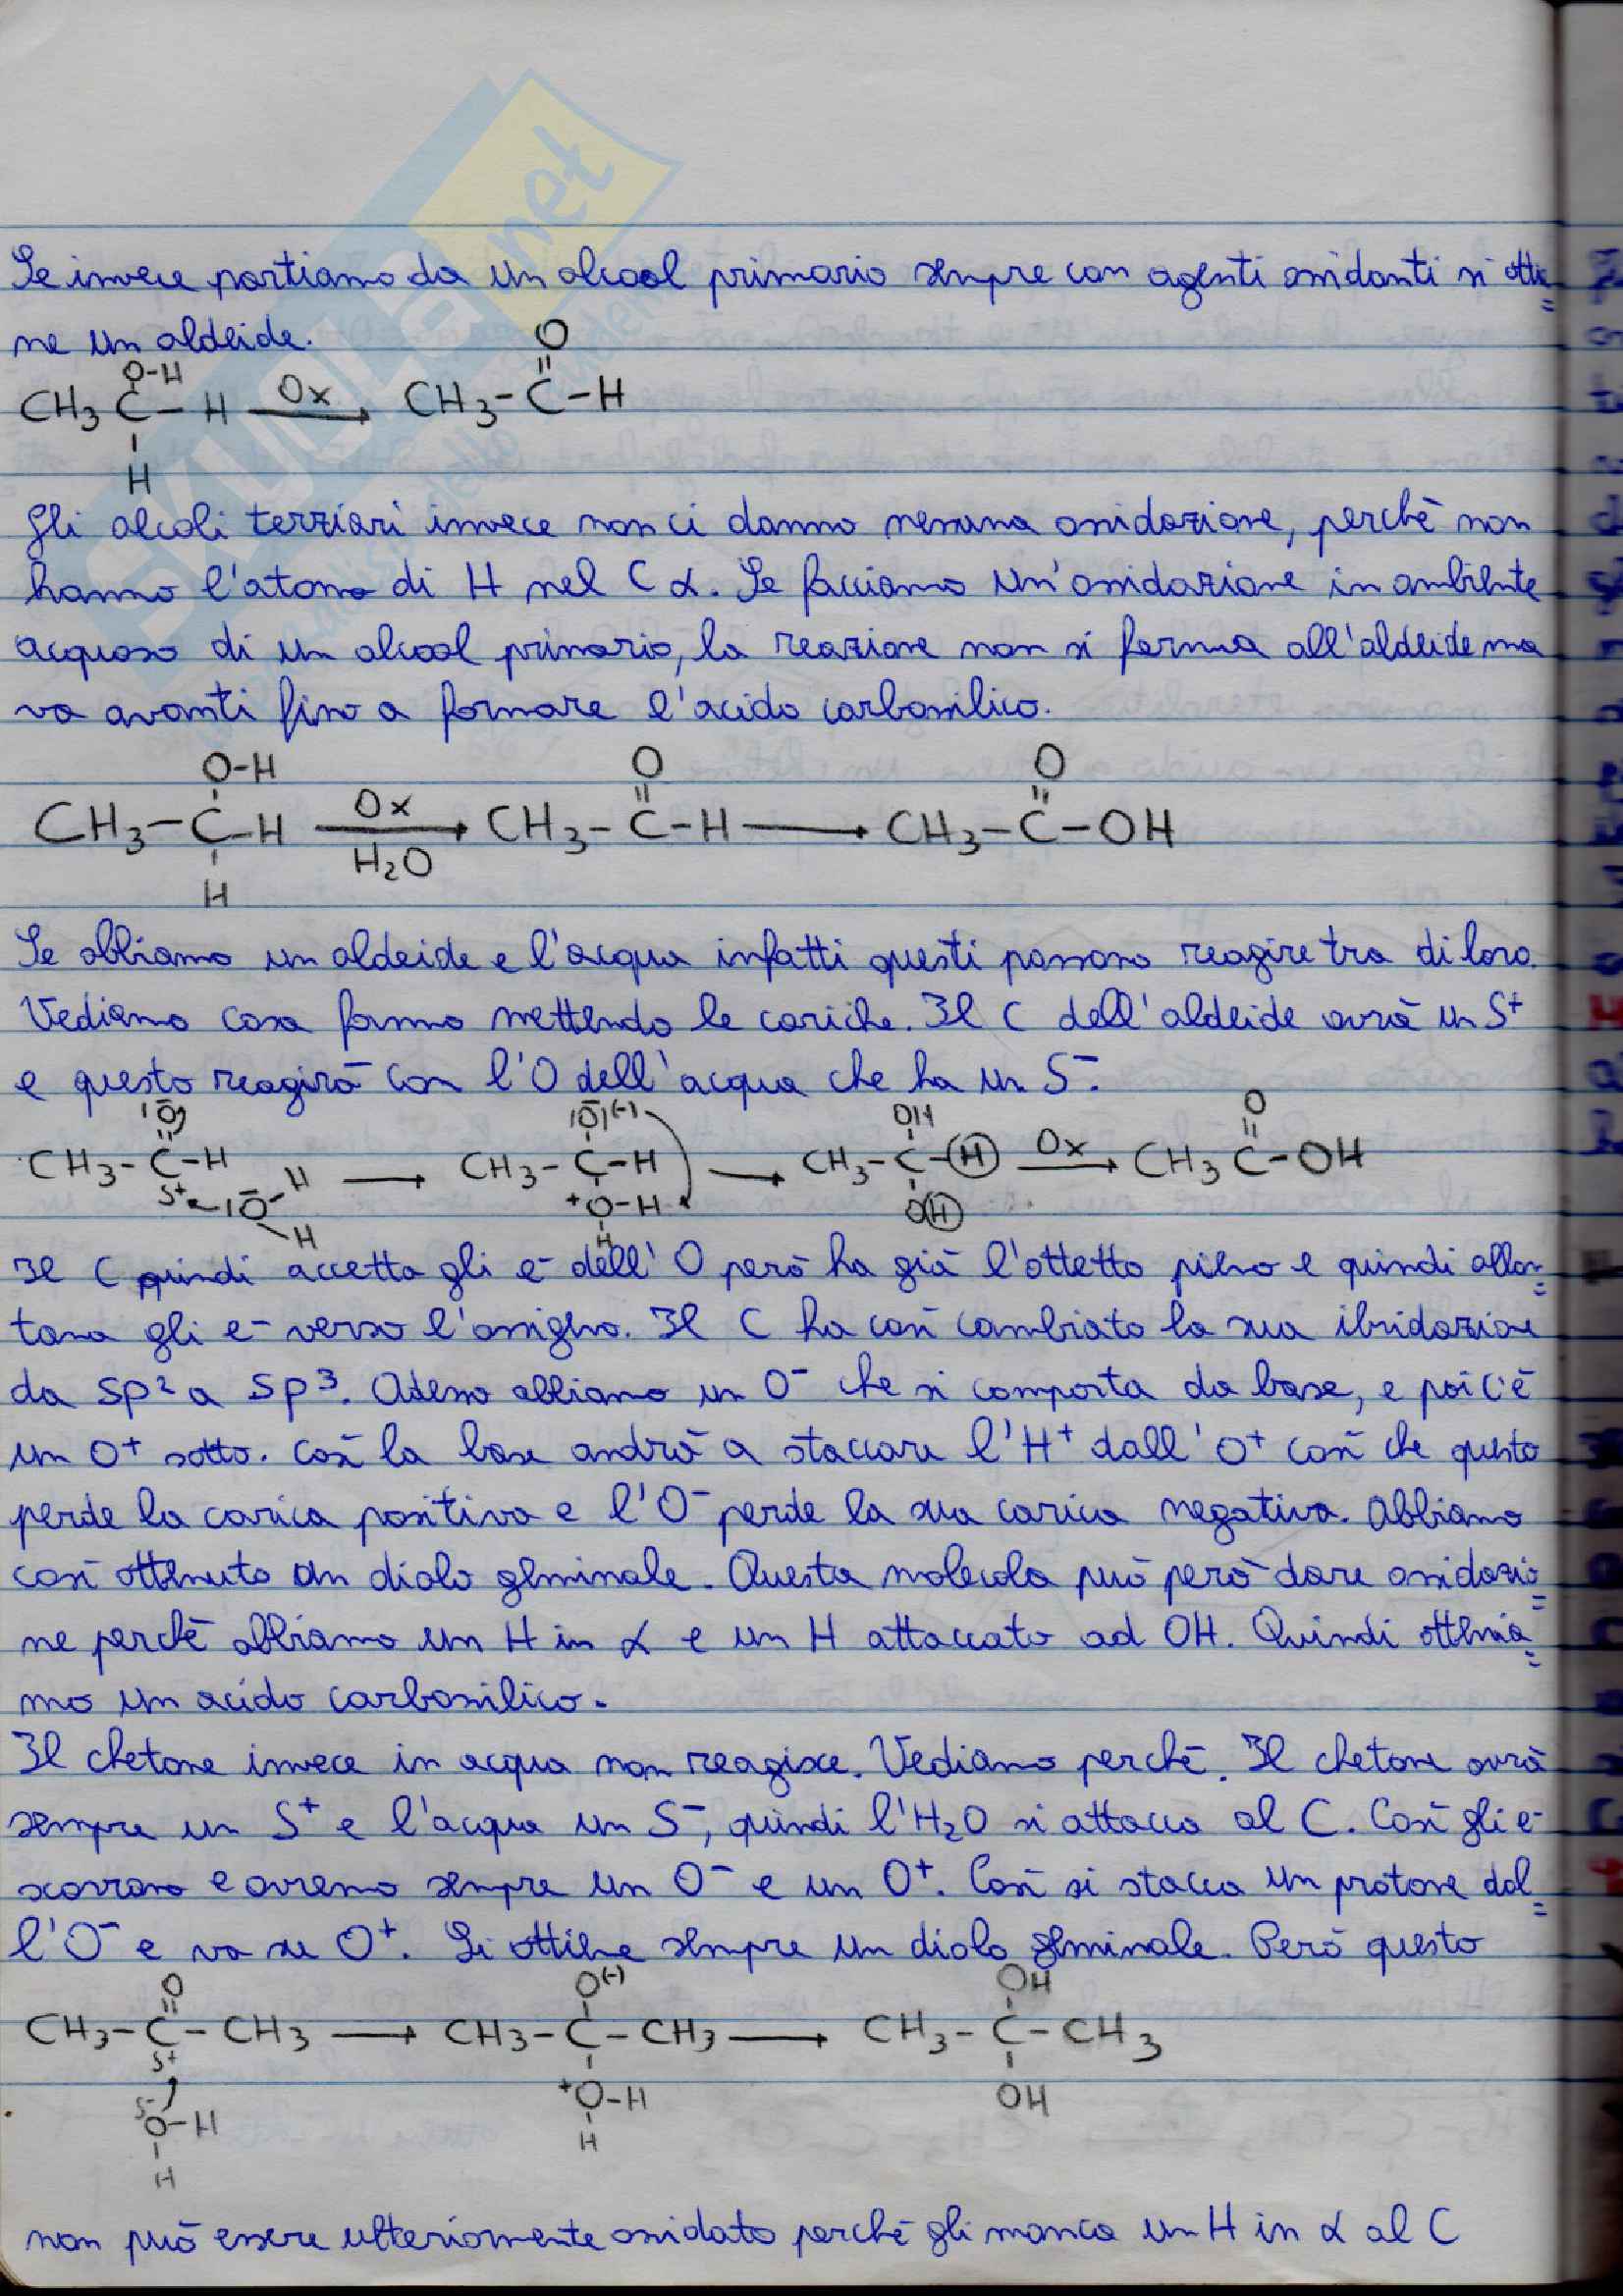 Se invece partiamo da un alcool primario sempre con agenti ossidanti si ottie=
ne un aldeide.
O-H O
CH3 C-H Ox CH3-C-H
H
Gli alcoli terziari invece non ci danno nessuna ossidazione, perchè non
hanno l'atomo di H nel C α. Se facciamo un'ossidazione in ambiente
acquoso di un alcool primario, la reazione non si ferma all'aldeide ma
va avanti fino a formare l'acido carbossilico.
O-H O O
CH3-C-H Ox CH3-C-H → CH3-C-OH
H2O
H
Se abbiamo un aldeide e l'acqua infatti questi possono reagire tra di loro.
Vediamo cosa fanno mettendo le cariche. Il C dell'aldeide avrà un S+
e questo reagirà con l'O dell'acqua che ha un S-.
O O(-) OH O
CH3-C-H → CH3-C-H → CH3-C-H Ox CH3 C-OH
S+ O-H +O-H OH
H H
Il C quindi accetta gli e- dell'O però ha già l'ottetto pieno e quindi allon=
tana gli e- verso l'ossigeno. Il C ha così cambiato la sua ibridazione
da sp2 a sp3. Adesso abbiamo un O- che si comporta da base, e poi c'è
un O+ sotto. Così la base andrà a staccare l'H+ dall'O+ così che questo
perde la carica positiva e l'O- perde la sua carica negativa. Abbiamo
così ottenuto un diolo geminale. Questa molecola può però dare ossidazio=
ne perchè abbiamo un H in α e un H attaccato ad OH. Quindi ottenia=
mo un acido carbossilico.
Il chetone invece in acqua non reagisce. Vediamo perchè. Il chetone avrà
sempre un S+ e l'acqua un S-, quindi l'H2O si attacca al C. Così gli e-
scorrono e avremo sempre un O- e un O+. Così si stacca un protone dal=
l'O- e va su O+. Si ottiene sempre un diolo geminale. Però questo
O O(-) OH
CH3-C-CH3 → CH3-C-CH3 → CH3-C-CH3
S+
S- +O-H OH
O-H H
H
non può essere ulteriormente ossidato perchè gli manca un H in α al C
SKUOLA.net